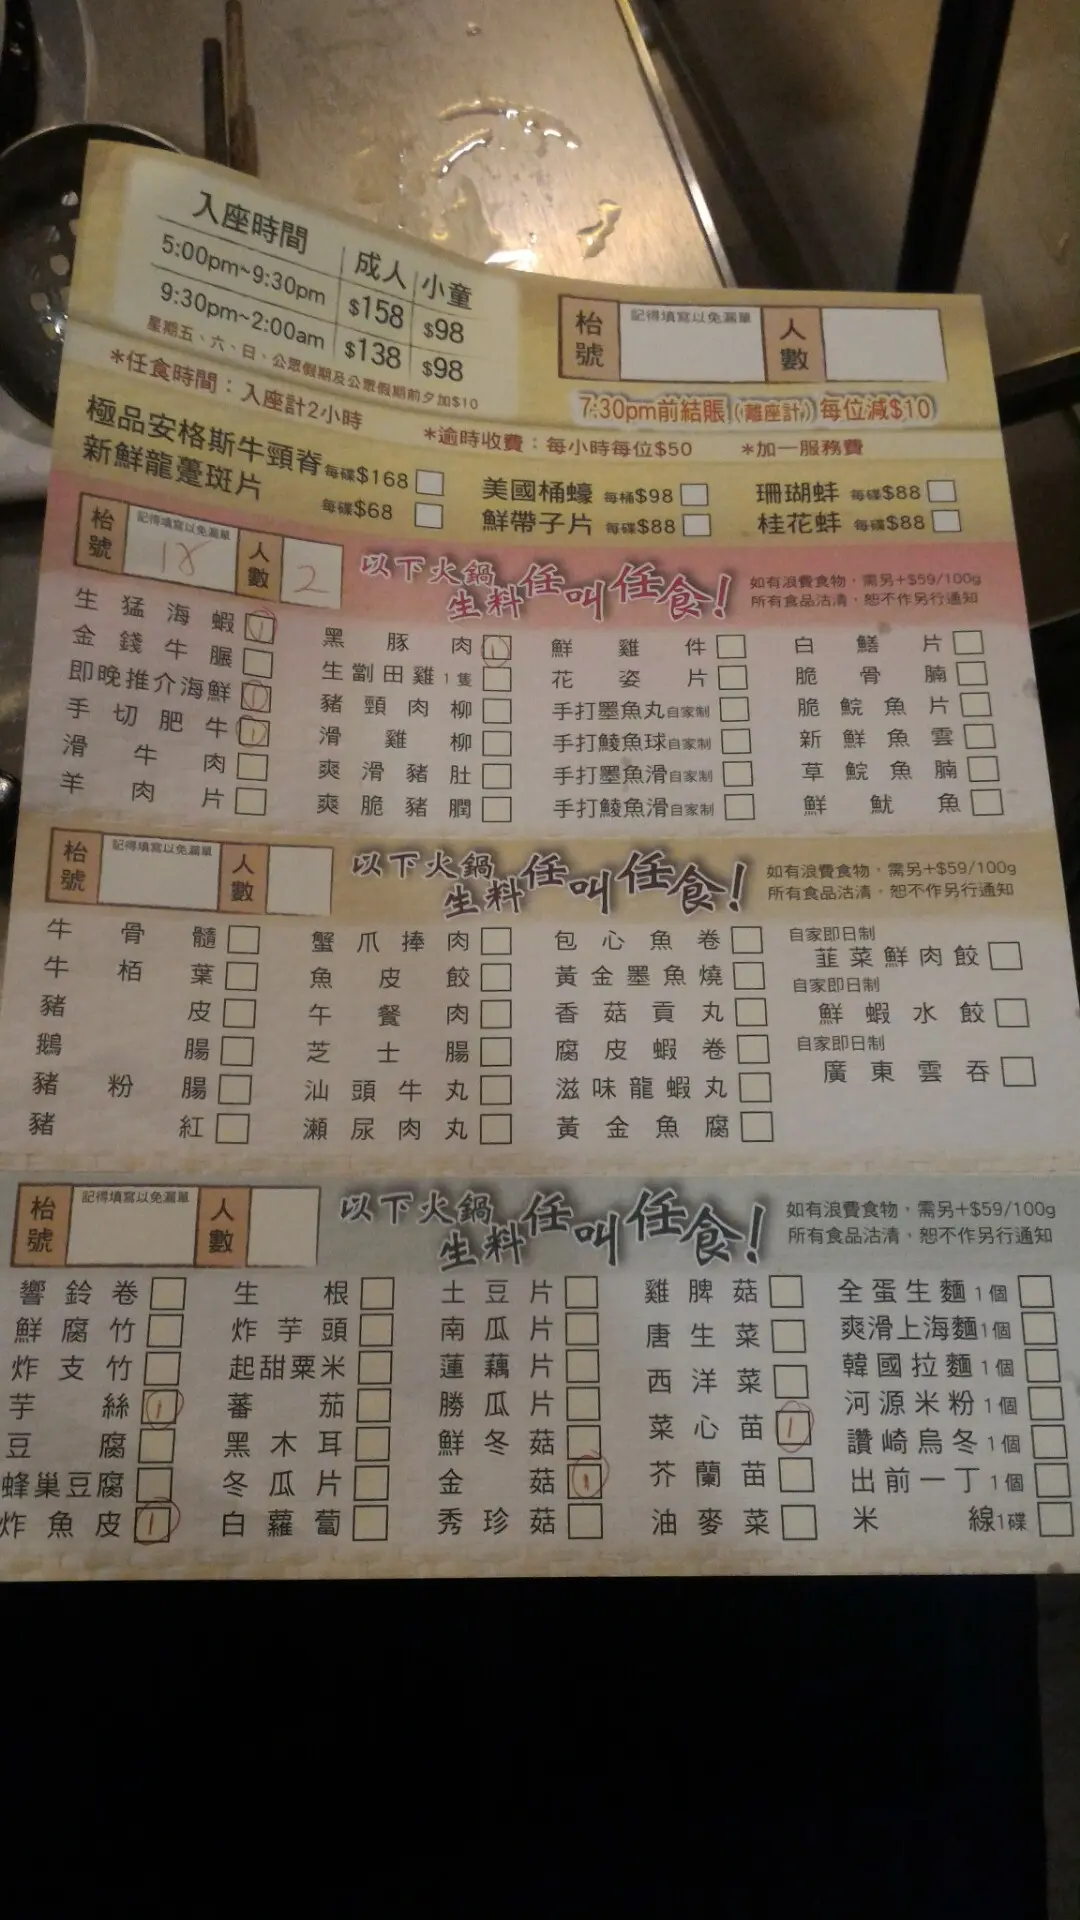 入座時間 成人 小童
5:00pm~9:30pm $158 $98
9:30pm~2:00am $138 $98
星期五、六、日、公眾假期及公眾假期前夕加$10
枱號 記得填寫以免漏單 人數
7:30pm前結賬(離座計)每位減$10
*任食時間：入座計2小時 *逾時收費：每小時每位$50 *加一服務費
極品安格斯牛頸脊 每碟$168
新鮮龍躉斑片 每碟$68
美國桶蠔 每桶$98
鮮帶子片 每碟$88
珊瑚蚌 每碟$88
桂花蚌 每碟$88
枱號 記得填寫以免漏單 18 人數 2
以下火鍋生料任叫任食！
如有浪費食物，需另+$59/100g
所有食品沽清，恕不作另行通知
生猛海蝦 1
金錢牛𦟌
即晚推介海鮮 1
手切肥牛 1
滑牛肉
羊肉片
黑豚肉 1
生劏田雞1隻
豬頸肉柳
滑雞柳
爽滑豬肚
爽脆豬膶
鮮雞件
花姿片
手打墨魚丸自家制
手打鯪魚球自家制
手打墨魚滑自家制
手打鯪魚滑自家制
白鱔片
脆骨腩
脆鯇魚片
新鮮魚雲
草鯇魚腩
鮮魷魚
枱號 記得填寫以免漏單 人數
以下火鍋生料任叫任食！
如有浪費食物，需另+$59/100g
所有食品沽清，恕不作另行通知
牛骨髓
牛栢葉
豬皮
鵝腸
豬粉腸
豬紅
蟹爪捧肉
魚皮餃
午餐肉
芝士腸
汕頭牛丸
瀨尿肉丸
包心魚卷
黃金墨魚燒
香菇貢丸
腐皮蝦卷
滋味龍蝦丸
黃金魚腐
自家即日制
韮菜鮮肉餃
自家即日制
鮮蝦水餃
自家即日制
廣東雲吞
枱號 記得填寫以免漏單 人數
以下火鍋生料任叫任食！
如有浪費食物，需另+$59/100g
所有食品沽清，恕不作另行通知
響鈴卷
鮮腐竹
炸支竹
芋絲 1
豆腐
蜂巢豆腐
炸魚皮 1
生根
炸芋頭
起甜粟米
蕃茄
黑木耳
冬瓜片
白蘿蔔
土豆片
南瓜片
蓮藕片
勝瓜片
鮮冬菇
金菇 1
秀珍菇
雞脾菇
唐生菜
西洋菜
菜心苗 1
芥蘭苗
油麥菜
全蛋生麵1個
爽滑上海麵1個
韓國拉麵1個
河源米粉1個
讚崎烏冬1個
出前一丁1個
米線1碟